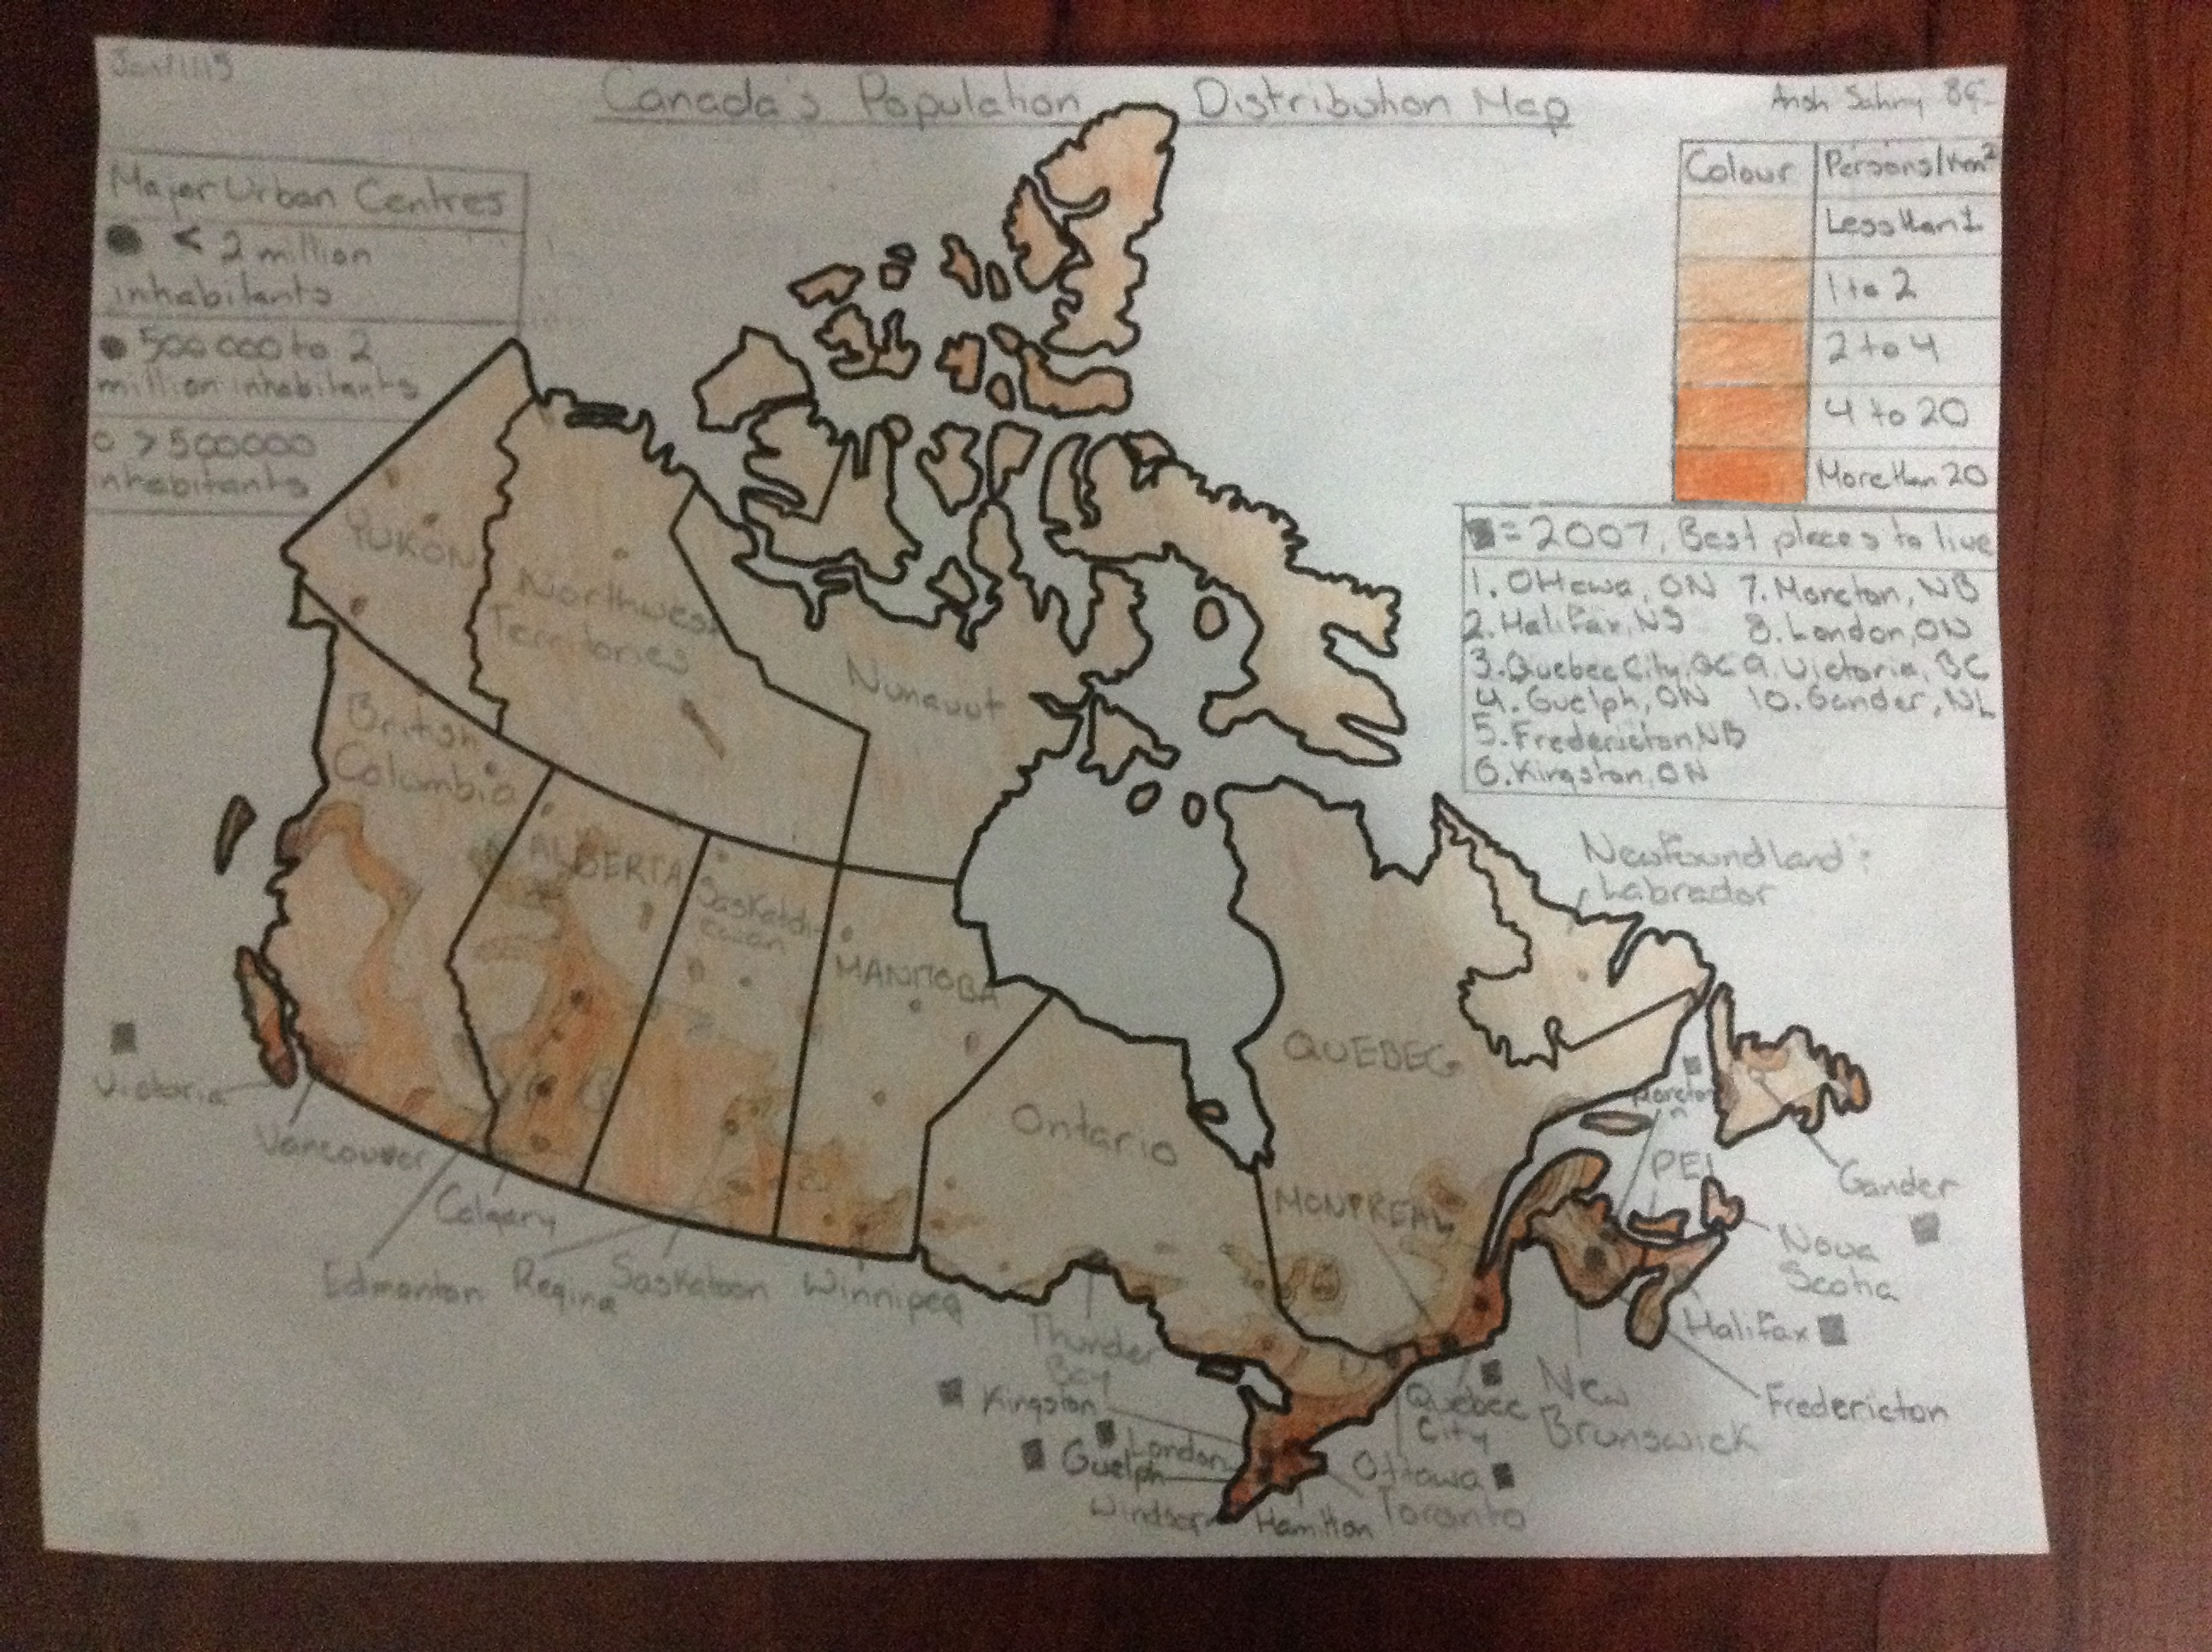 Canada's Population Distribution Map
Ansh Sahny 8G
Major Urban Centres
< 2 million
inhabitants
500 000 to 2
million inhabitants
> 500000
inhabitants
Colour Persons/km²
Less than 1
1 to 2
2 to 4
4 to 20
More than 20
= 2007, Best places to live
1. Ottawa, ON 7. Moncton, NB
2. Halifax, NS 8. London, ON
3. Quebec City, QC 9. Victoria, BC
4. Guelph, ON 10. Gander, NL
5. Fredericton, NB
6. Kingston, ON
YUKON
Northwest
Territories
Nunavut
British
Columbia
ALBERTA
Saskatch-
ewan
MANITOBA
Ontario
QUEBEC
Newfoundland &
Labrador
MONTREAL
Moncton
PEI
Gander
Nova
Scotia
Halifax
Fredericton
New
Brunswick
Quebec
City
Ottawa
Toronto
Hamilton
Windsor
Guelph
London
Kingston
Thunder
Bay
Winnipeg
Saskatoon
Regina
Edmonton
Calgary
Vancouver
Victoria